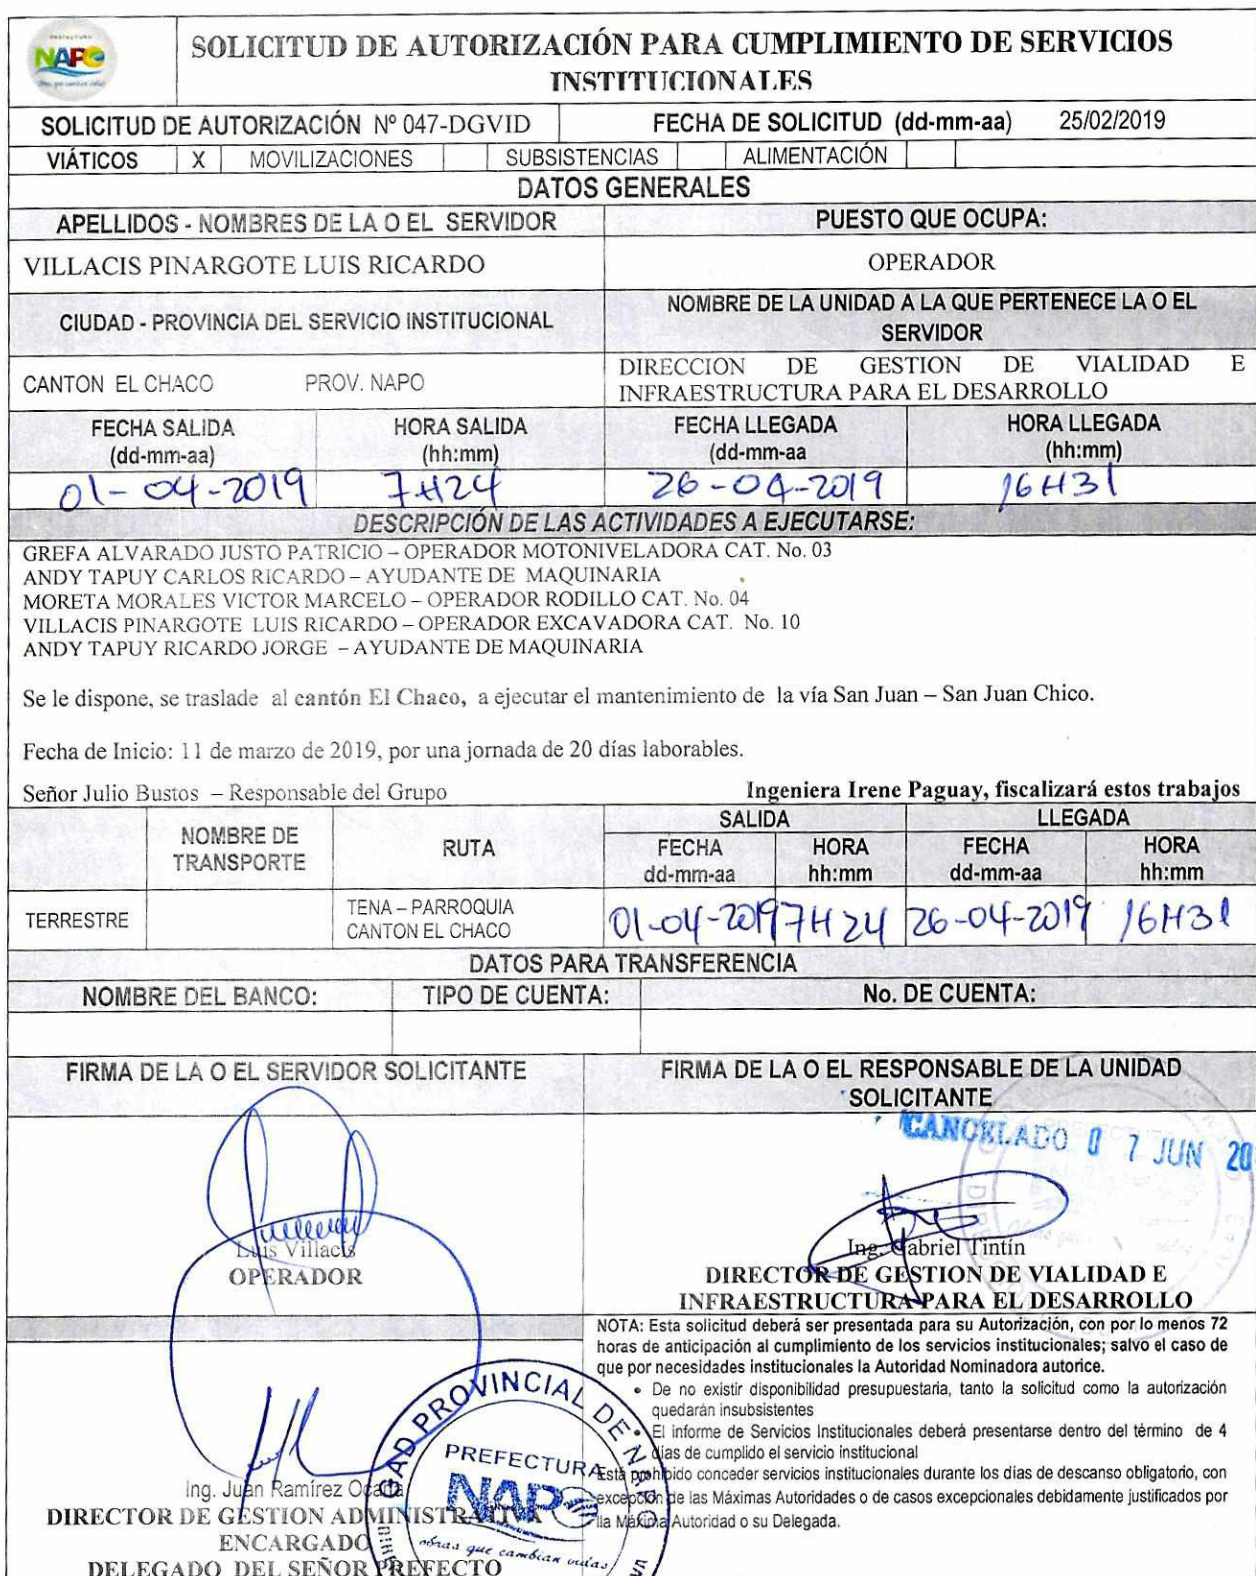 PREFECTURA
NAPO
SOLICITUD DE AUTORIZACIÓN PARA CUMPLIMIENTO DE SERVICIOS
INSTITUCIONALES
SOLICITUD DE AUTORIZACIÓN Nº 047-DGVID FECHA DE SOLICITUD (dd-mm-aa) 25/02/2019
VIÁTICOS X MOVILIZACIONES SUBSISTENCIAS ALIMENTACIÓN
DATOS GENERALES
APELLIDOS - NOMBRES DE LA O EL SERVIDOR PUESTO QUE OCUPA:
VILLACIS PINARGOTE LUIS RICARDO OPERADOR
CIUDAD - PROVINCIA DEL SERVICIO INSTITUCIONAL NOMBRE DE LA UNIDAD A LA QUE PERTENECE LA O EL
SERVIDOR
CANTON EL CHACO PROV. NAPO DIRECCION DE GESTION DE VIALIDAD E
INFRAESTRUCTURA PARA EL DESARROLLO
FECHA SALIDA HORA SALIDA FECHA LLEGADA HORA LLEGADA
(dd-mm-aa) (hh:mm) (dd-mm-aa (hh:mm)
01-04-2019 7H24 26-04-2019 16H31
DESCRIPCIÓN DE LAS ACTIVIDADES A EJECUTARSE:
GREFA ALVARADO JUSTO PATRICIO – OPERADOR MOTONIVELADORA CAT. No. 03
ANDY TAPUY CARLOS RICARDO – AYUDANTE DE MAQUINARIA
MORETA MORALES VICTOR MARCELO – OPERADOR RODILLO CAT. No. 04
VILLACIS PINARGOTE LUIS RICARDO – OPERADOR EXCAVADORA CAT. No. 10
ANDY TAPUY RICARDO JORGE – AYUDANTE DE MAQUINARIA
Se le dispone, se traslade al cantón El Chaco, a ejecutar el mantenimiento de la vía San Juan – San Juan Chico.
Fecha de Inicio: 11 de marzo de 2019, por una jornada de 20 días laborables.
Señor Julio Bustos – Responsable del Grupo Ingeniera Irene Paguay, fiscalizará estos trabajos
SALIDA LLEGADA
NOMBRE DE TRANSPORTE RUTA FECHA HORA FECHA HORA
dd-mm-aa hh:mm dd-mm-aa hh:mm
TERRESTRE TENA – PARROQUIA
CANTON EL CHACO 01-04-2019 7H24 26-04-2019 16H31
DATOS PARA TRANSFERENCIA
NOMBRE DEL BANCO: TIPO DE CUENTA: No. DE CUENTA:
FIRMA DE LA O EL SERVIDOR SOLICITANTE FIRMA DE LA O EL RESPONSABLE DE LA UNIDAD
SOLICITANTE
CANCELADO 07 JUN 20
Luis Villacís
OPERADOR
Ing. Gabriel Tintín
DIRECTOR DE GESTION DE VIALIDAD E
INFRAESTRUCTURA PARA EL DESARROLLO
NOTA: Esta solicitud deberá ser presentada para su Autorización, con por lo menos 72
horas de anticipación al cumplimiento de los servicios institucionales; salvo el caso de
que por necesidades institucionales la Autoridad Nominadora autorice.
• De no existir disponibilidad presupuestaria, tanto la solicitud como la autorización
quedarán insubsistentes
• El informe de Servicios Institucionales deberá presentarse dentro del término de 4
días de cumplido el servicio institucional
Está prohibido conceder servicios institucionales durante los días de descanso obligatorio, con
excepción de las Máximas Autoridades o de casos excepcionales debidamente justificados por
lla Máxima Autoridad o su Delegada.
Ing. Juan Ramírez
DIRECTOR DE GESTION ADMINISTRATIVA
ENCARGADO
DELEGADO DEL SEÑOR PREFECTO
GAD PROVINCIAL DE NAPO
PREFECTURA
NAPO
obras que cambian vidas